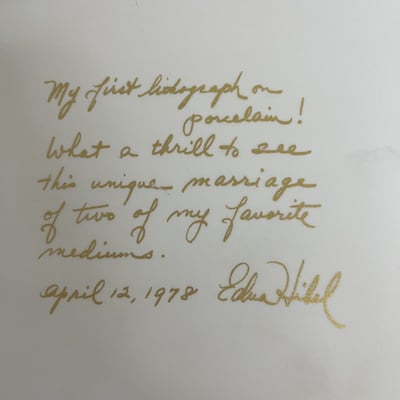 My first lithograph on
porcelain!
What a thrill to see
this unique marriage
of two of my favorite
mediums.
April 12, 1978 Edna Hibel